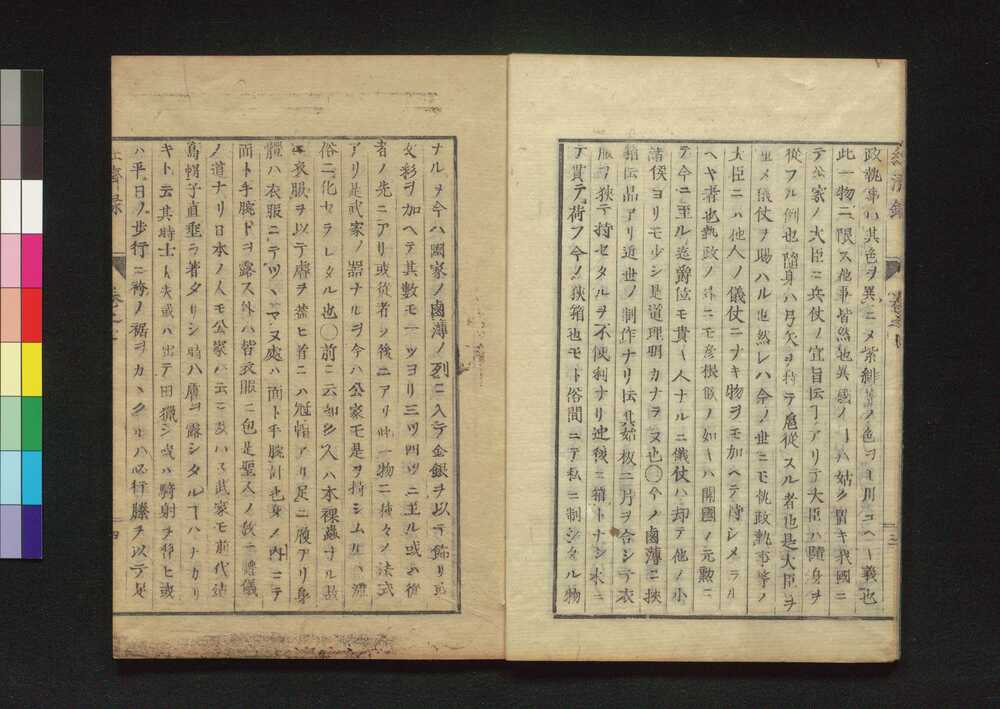 經濟錄 卷之
政執事ハ其色ヲ異ニメ紫緋等ノ色ヲモ用ユヘキ義也
此一物ニ限ス他事皆然也異感イノーハ姑ク置キ我國ニ
テ公家ノ大臣ニ兵仗ノ宣旨云アリテ大臣ハ隨身ヲ
從フル例也隨身ハ弓矢ヲ持テ扈從スル者也是大臣ヲ
重メ儀仗ヲ賜ハル也然レハ今ノ世ニモ執政執事等ノ
大臣ニハ他人ノ儀仗ニナキ物ヲモ加ヘテ侍シメラル
ヘキ者也執政ノ外ニモ彦根矦ノ如キハ開國ノ元勲ニ
テ今ニ至ル迄爵位モ貴キ人ナルニ儀仗ハ却テ他ノ小
諸侯ヨリモ少シ是道理明カナラヌ也〇今ノ鹵薄ニ挾
箱云品アリ近世ノ制作ナリ云其始板二片ヲ合シテ衣
服ヲ狹テ持セタルヲ不便利ナリ迚後ニ箱トナシ木ニ
テ貫テ荷フ今ノ狹箱也モト俗間ニテ私ニ制シタル物
ナルヲ今ハ國家ノ鹵薄ノ列ニ入テ金銀ヲ以テ飾リ
文彩ヲ加ヘテ其數モ一ツヨリ三ツ四ツニ至ル或ハ
者ノ先ニアリ或從者ノ後ニアリ此一物ニ種々ノ法式
アリ是武家ノ器ナルヲ今ハ公家モ是ヲ持シムルハ
俗ニ化セラレタル也〇前ニ云如ク人ハ本裸蟲ナル故
ニ衣服ヲ以テ膚ヲ蓋ヒ首ニハ冠帽アリ足ニ履アリ身
體ハ衣服ニテツヽマヌ處ハ面ト手腕計也身ノ内ニテ
面ト手腕トヲ露ス外ハ皆衣服ニ包是聖人ノ敎ニ禮儀
ノ道ナリ日本ノ人モ公家ハ云ニ及ハス武家モ前代迠
烏帽子直垂ヲ著タリシ時ハ膚ヲ露シタルハナカリ
キト云其時士ト夫或ハ出テ田獵シ或ハ騎射ヲ習ヒ或
ハ平日ノ歩行ニ袴ノ裾ヲカヽクルハ必行縢ヲ以テ足
濟錄 卷之 四